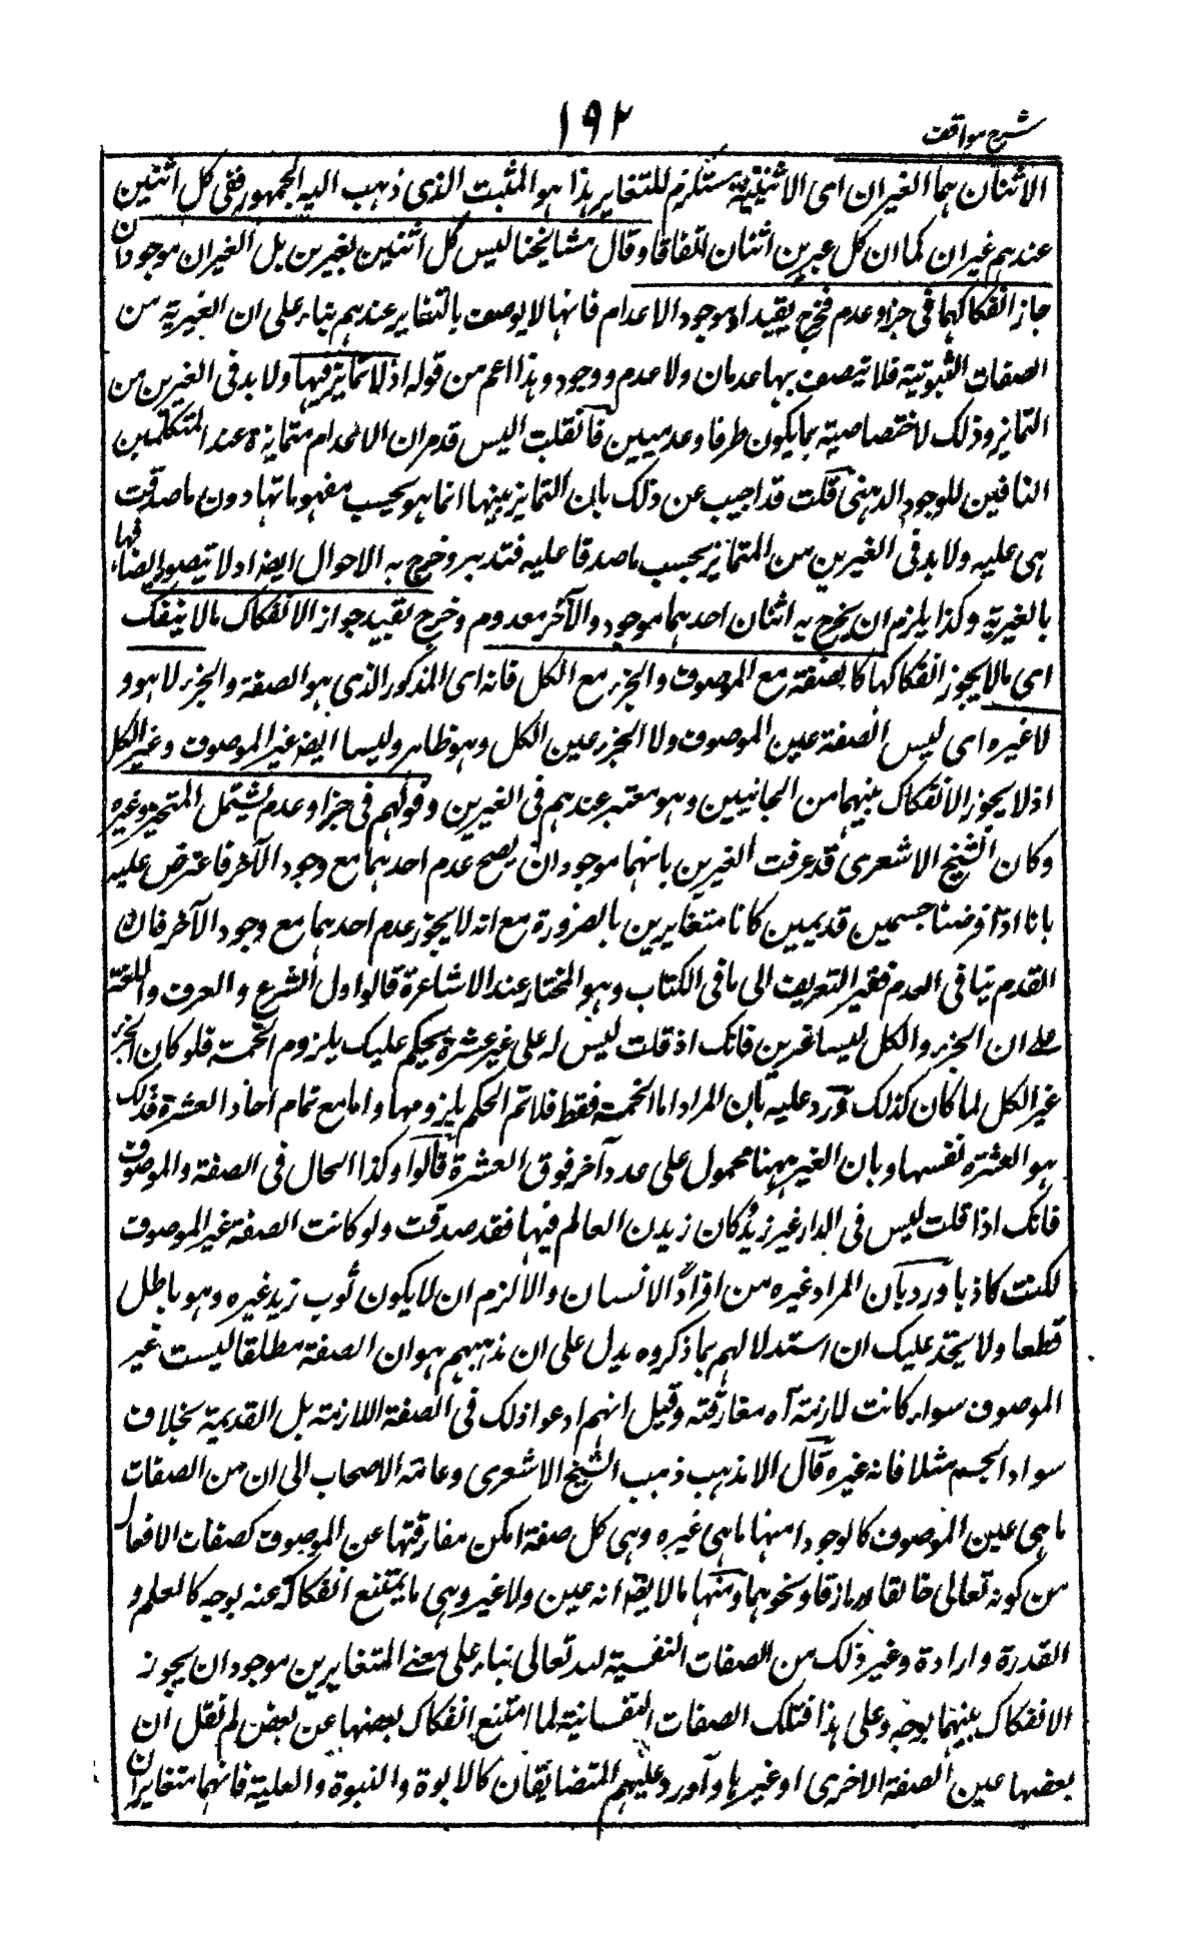 شرح مواقف
١٩٢
الاثنان هما الغيران اى الاثنينية تستلزم للتغاير هذا هو المثبت الذى ذهب اليه الجمهور ففى كل اثنين
عندهم غيران كما ان كل غيرين اثنان اتفاقا وقال مشايخنا ليس كل اثنين بغيرين بل الغيران موجودان
جاز انفكاكهما فى حيز او عدم فخرج بقيد الوجود الاعدام فانها لا يوصف بالتغاير عندهم بناء على ان الغيرية من
الصفات الثبوتية فلا تيصف بها عدمان ولا عدم ووجود وهذا اعم من قوله اذ لا تمايز فيها ولا بد فى الغيرين من
التمايز وذلك لاختصاصيته بما يكون طرفاه عدميين فان قلت اليس قد مر ان الاعدام متمايزة عند المتكلمين
النافين للوجود الذهنى قلت قد اجيب عن ذلك بان التمايز بينها انما هو بحسب مفهوماتها دون ما صدقت
هى عليه ولا بد فى الغيرين من التمايز بحسب ما صدقا عليه فتدبر وخرج به الاحوال ايضا اذ لا يتصور اتصافها
بالغيرية وكذا يلزم ان يخرج به اثنان احدهما موجود والآخر معدوم وخرج بقيد جواز الانفكاك ما لا ينفك
اى ما لا يجوز انفكاكها كالصفة مع الموصوف والجزء مع الكل فانه اى المذكور الذى هو الصفة والجزء لا هو و
لا غيره اى ليس الصفة عين الموصوف ولا الجزء عين الكل وهو ظاهر وليسا ايضا غير الموصوف وغير الكل
اذ لا يجوز الانفكاك بينهما من الجانبين وهو معتبر عندهم فى الغيرين وقولهم فى حيز او عدم يشتمل المتحيز وغيره
وكان الشيخ الاشعرى قد عرف الغيرين بانهما موجودان يصح عدم احدهما مع وجود الآخر فاعترض عليه
بانا اذا فرضنا جسمين قديمين كانا متغايرين بالضرورة مع انه لا يجوز عدم احدهما مع وجود الآخر فان
القدم ينافى العدم فغير التعريف الى ما فى الكتاب وهو المختار عند الاشاعرة قالوا دل الشرع والعرف واللغة
على ان الجزء والكل ليسا غيرين فانك اذ قلت ليس له على غير عشرة يحكم عليك بلزوم الخمسة فلو كان الجزء
غير الكل لما كان كذلك ورد عليه بان المراد اما الخمسة فقط فلا تم الحكم بلزومها واما مع تمام احاد العشرة فذلك
هو العشرة نفسها وبان الغير ههنا محمول على عدد آخر فوق العشرة قالوا وكذا الحال فى الصفة والموصوف
فانك اذا قلت ليس فى الدار غير زيد وكان زيد العالم فيها فقد صدقت ولو كانت الصفة غير الموصوف
لكنت كاذبا ورد بان المراد غيره من افراد الانسان والا لزم ان لا يكون ثوب زيد غيره وهو باطل
قطعا ولا يخفى عليك ان استدلالهم بما ذكروه يدل على ان مذهبهم هو ان الصفة مطلقا ليست غير
الموصوف سواء كانت لازمة او مفارقة وقيل انهم ادعوا ذلك فى الصفة اللازمة بل القديمة بخلاف
سواد الجسم مثلا فانه غيره قال الآمدى ذهب الشيخ الاشعرى وعامة الاصحاب الى ان من الصفات
ما هى عين الموصوف كالوجود ومنها ما هى غيره وهى كل صفة امكن مفارقتها عن الموصوف كصفات الافعال
من كونه تعالى خالقا ورازقا ونحوهما ومنها ما لا يقه انه عين ولا غير وهى ما يمتنع انفكاكه عنه بوجه كالعلم و
القدرة وارادة وغير ذلك من الصفات النفسية لله تعالى بناء على معنى المتغايرين موجودان يجوز
الانفكاك بينهما بوجه وعلى هذا فتلك الصفات النفسانية لما امتنع انفكاك بعضها عن بعض لم نقل ان
بعضها عين الصفة الاخرى او غيرها وآورد عليهم المتضايفان كالابوة والبنوة والعلية فانهما متغايران